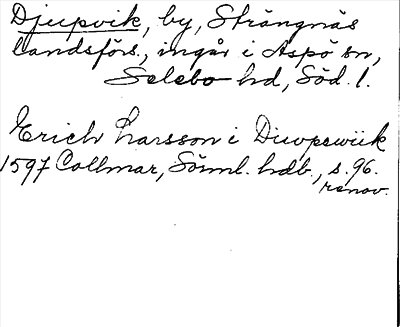 Djupvik, by, Strängnäs
landsförs., ingår i Aspö sn,
Selebo hd, Söd. l.
Erich Larsson i Diwpewiik
1597 Collmar, Sörml. hdb., s. 96.
renov.